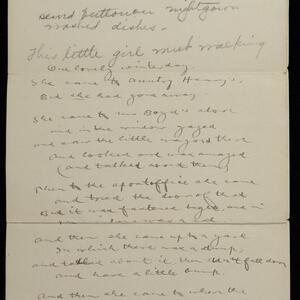 sewed buttons on nightgown
washed dishes.
This little girl went walking
One lovely winter day.
She came to Aunty Henry's
But she had gone away.
She came to Mr Boyd's store
and in the window gazed
and saw the little
and looked and was amazed
(and talked about them)
Then to the post office she came
and tried the door of that
But it was fastened tight, and in
was a
and then she came up to a yard
In which there was a dump,
and talked about it, then didn't fall down
and have a little bump.
And then she came to where the